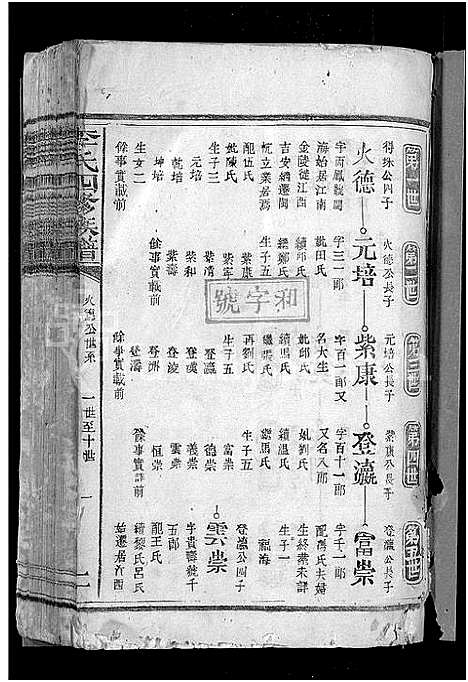 第一世
得珠公四子
火德
字丙鳳號
海始居江南
金陵徙江西
吉安
立業
配伍氏
妣陳氏
生子三
元培
乾培
坤培
生女二
餘事實載前
第二世
火德公長子
元培
字三一郎
妣田氏
續邱氏
續鄭氏
生子五
紫康
紫和
紫濤
餘事實載前
第三世
元培公長子
紫康
字百一郎又
名大生
妣邱氏
續馬氏
繼張氏
再劉氏
生子五
登瀛
登凌
登洲
登濤
餘事實載前
第四世
紫康公長子
登瀛
字百十一郎
又名八郎
妣劉氏
續溫氏
續馬氏
生子五
富崇
德崇
雲崇
恒崇
餘事實詳前
第五世
登瀛公長子
富崇
字千一郎
配馮氏夫婦
生終葬未詳
生子一
福海
登瀛公四子
雲崇
字貴壽號千
五郎
配王氏
續黎氏呂氏
和字號
李氏四修族譜
火德公世系
一世至十世
一